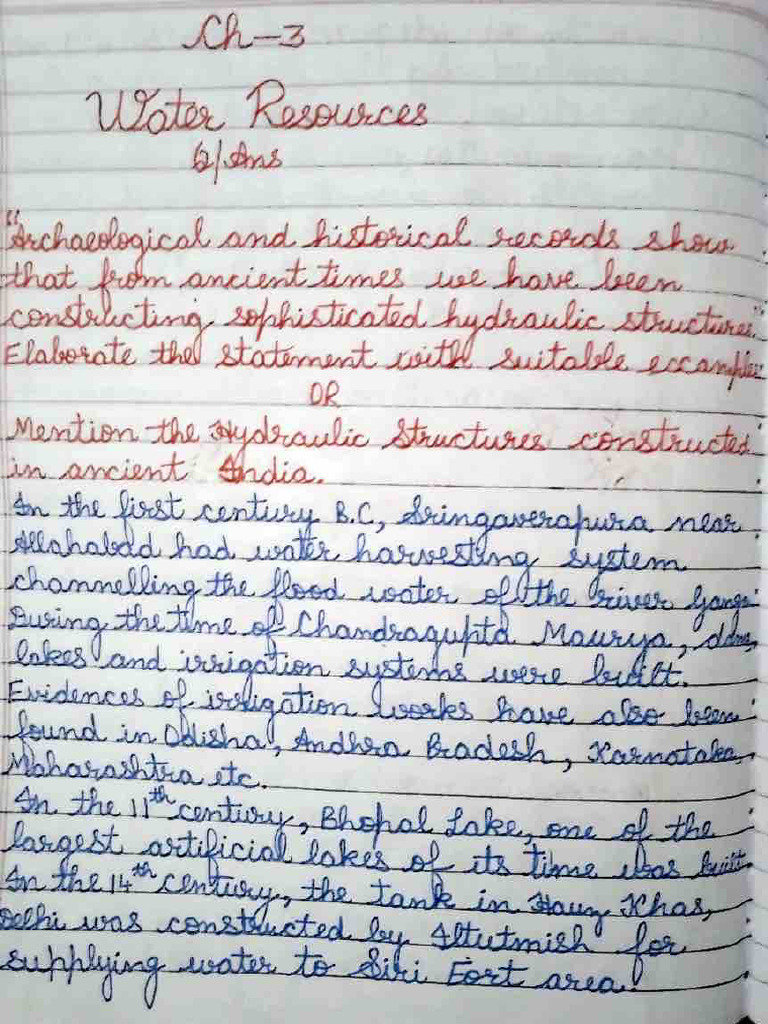 Ch-3
Water Resources
Q/Ans
"Archaeological and historical records show
that from ancient times we have been
constructing sophisticated hydraulic structures."
Elaborate the statement with suitable eccamples.
OR
Mention the Hydraulic Structures constructed
in ancient India.
In the first century B.C, Sringaverapura near
Allahabad had water harvesting system
channelling the flood water of the river Ganga.
During the time of Chandragupta Maurya, dams,
lakes and irrigation systems were built.
Evidences of irrigation works have also been
found in Odisha, Andhra Pradesh, Karnataka,
Maharashtra etc.
In the 11th century, Bhopal Lake, one of the
largest artificial lakes of its time was built.
In the 14th century, the tank in Hauz Khas,
Delhi was constructed by Iltutmish for
supplying water to Siri Fort area.